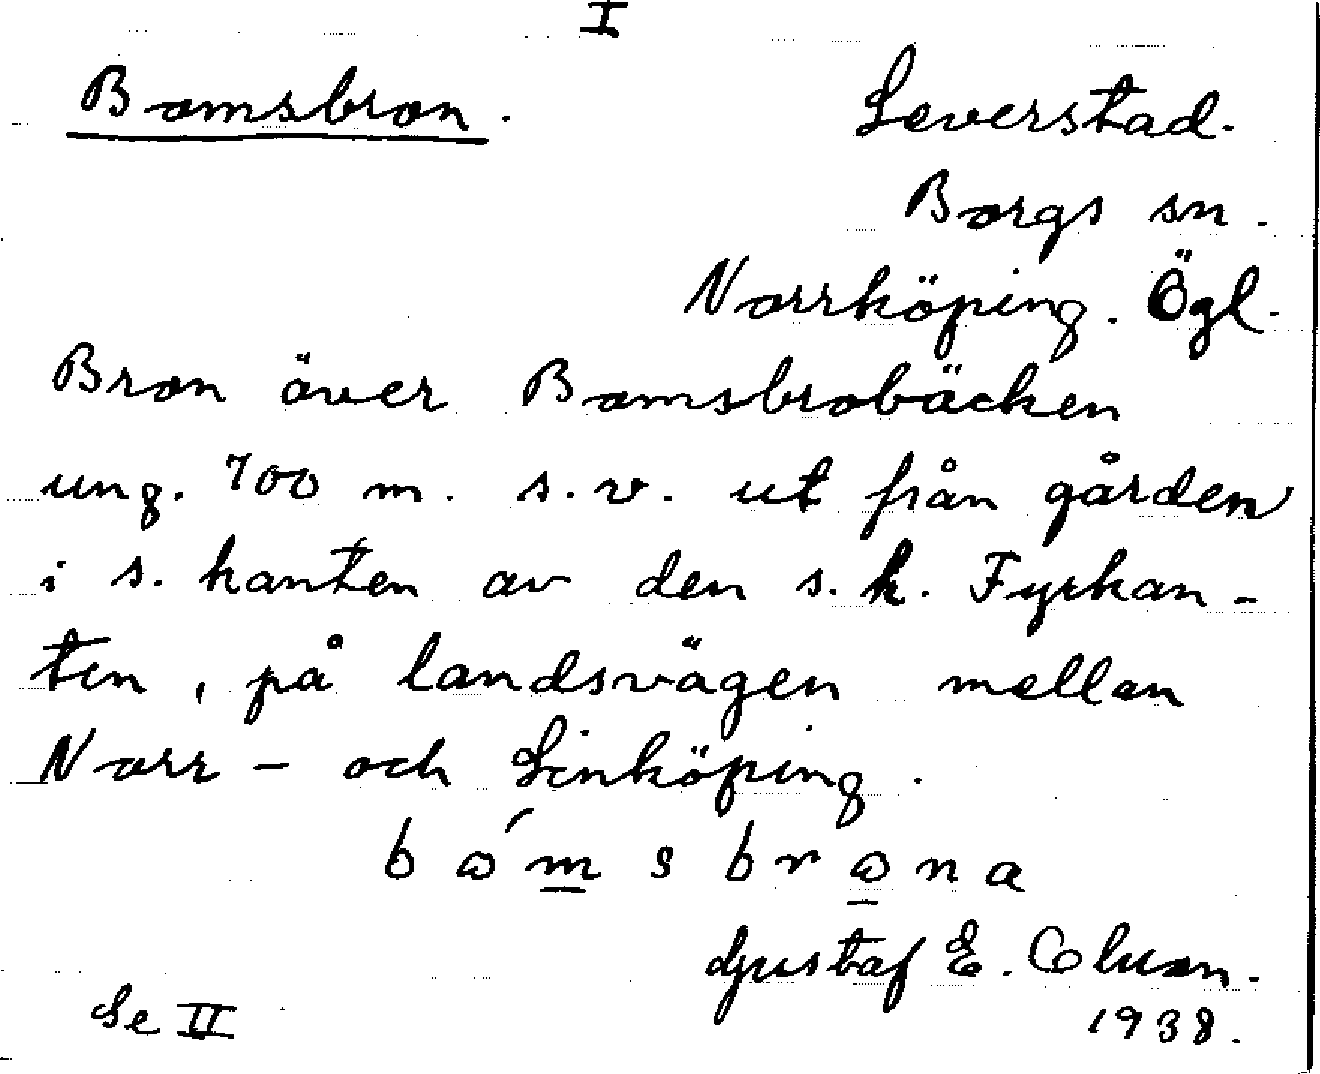 I
Bomsbron.
Leverstad.
Borgs sn.
Norrköping. Ögl.
Bron över Bomsbrobäcken
ung. 700 m. s.v. ut från gården
i s. kanten av den s.k. Fyrkan-
ten, på landsvägen mellan
Norr- och Linköping.
Gustaf E. 
1938.
Se II